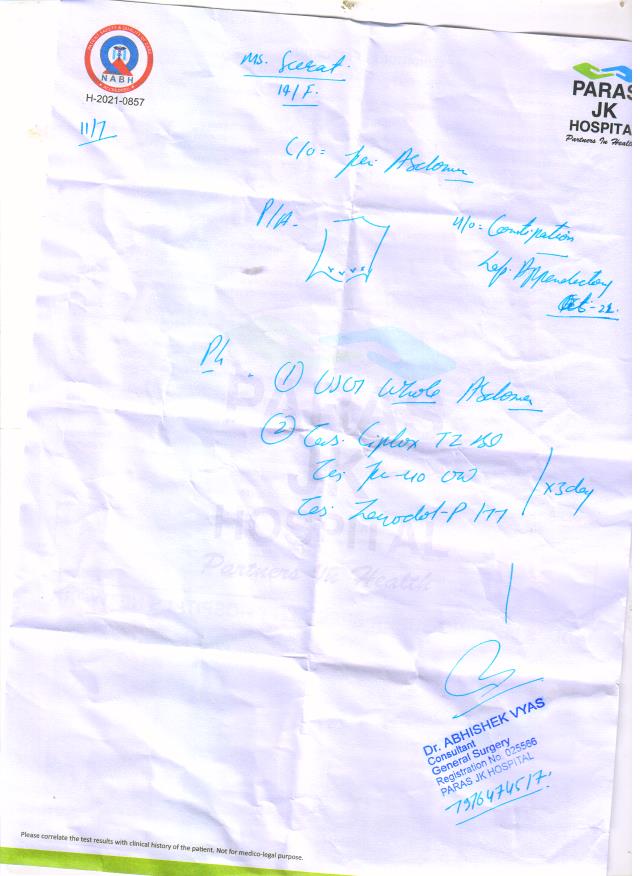 PATIENT SAFETY & QUALITY OF CARE
NABH
ACCREDITED
H-2021-0857
PARAS
JK
HOSPITAL
Partners In Health
Ms. Seerat
14/F.
11/7
C/o = Pain Abdomen
P/A -
H/o = Constipation
Lap. Appendectomy
Oct - 22
① USG Whole Abdomen
② Tab. Ciplox TZ BD
Tab Pan-40 OD
Tab Zerodol-P
x 3 day
PARAS
JK
HOSPITAL
Partners In Health
Dr. ABHISHEK VYAS
Consultant
General Surgery
Registration No. 025566
PARAS JK HOSPITAL
Please correlate the test results with clinical history of the patient. Not for medico-legal purpose.